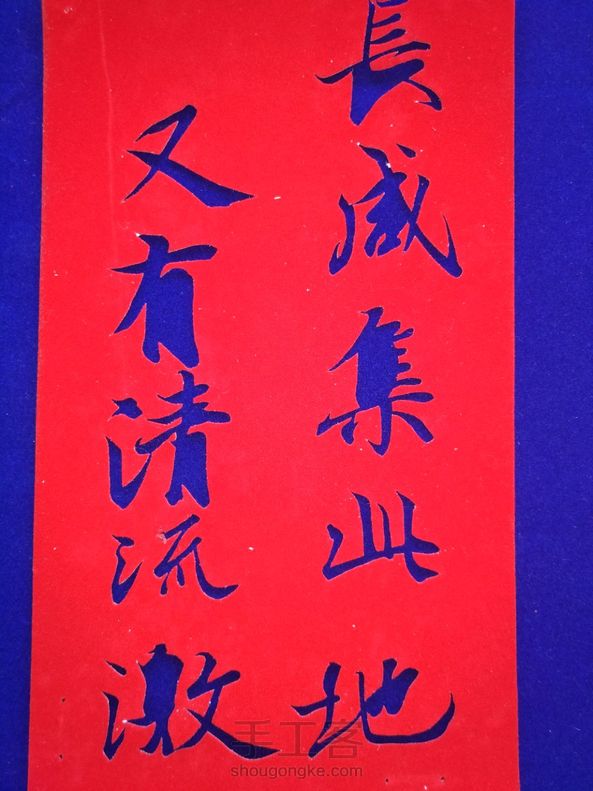 長咸集此地
又有清流激
手工客
shougongke.com